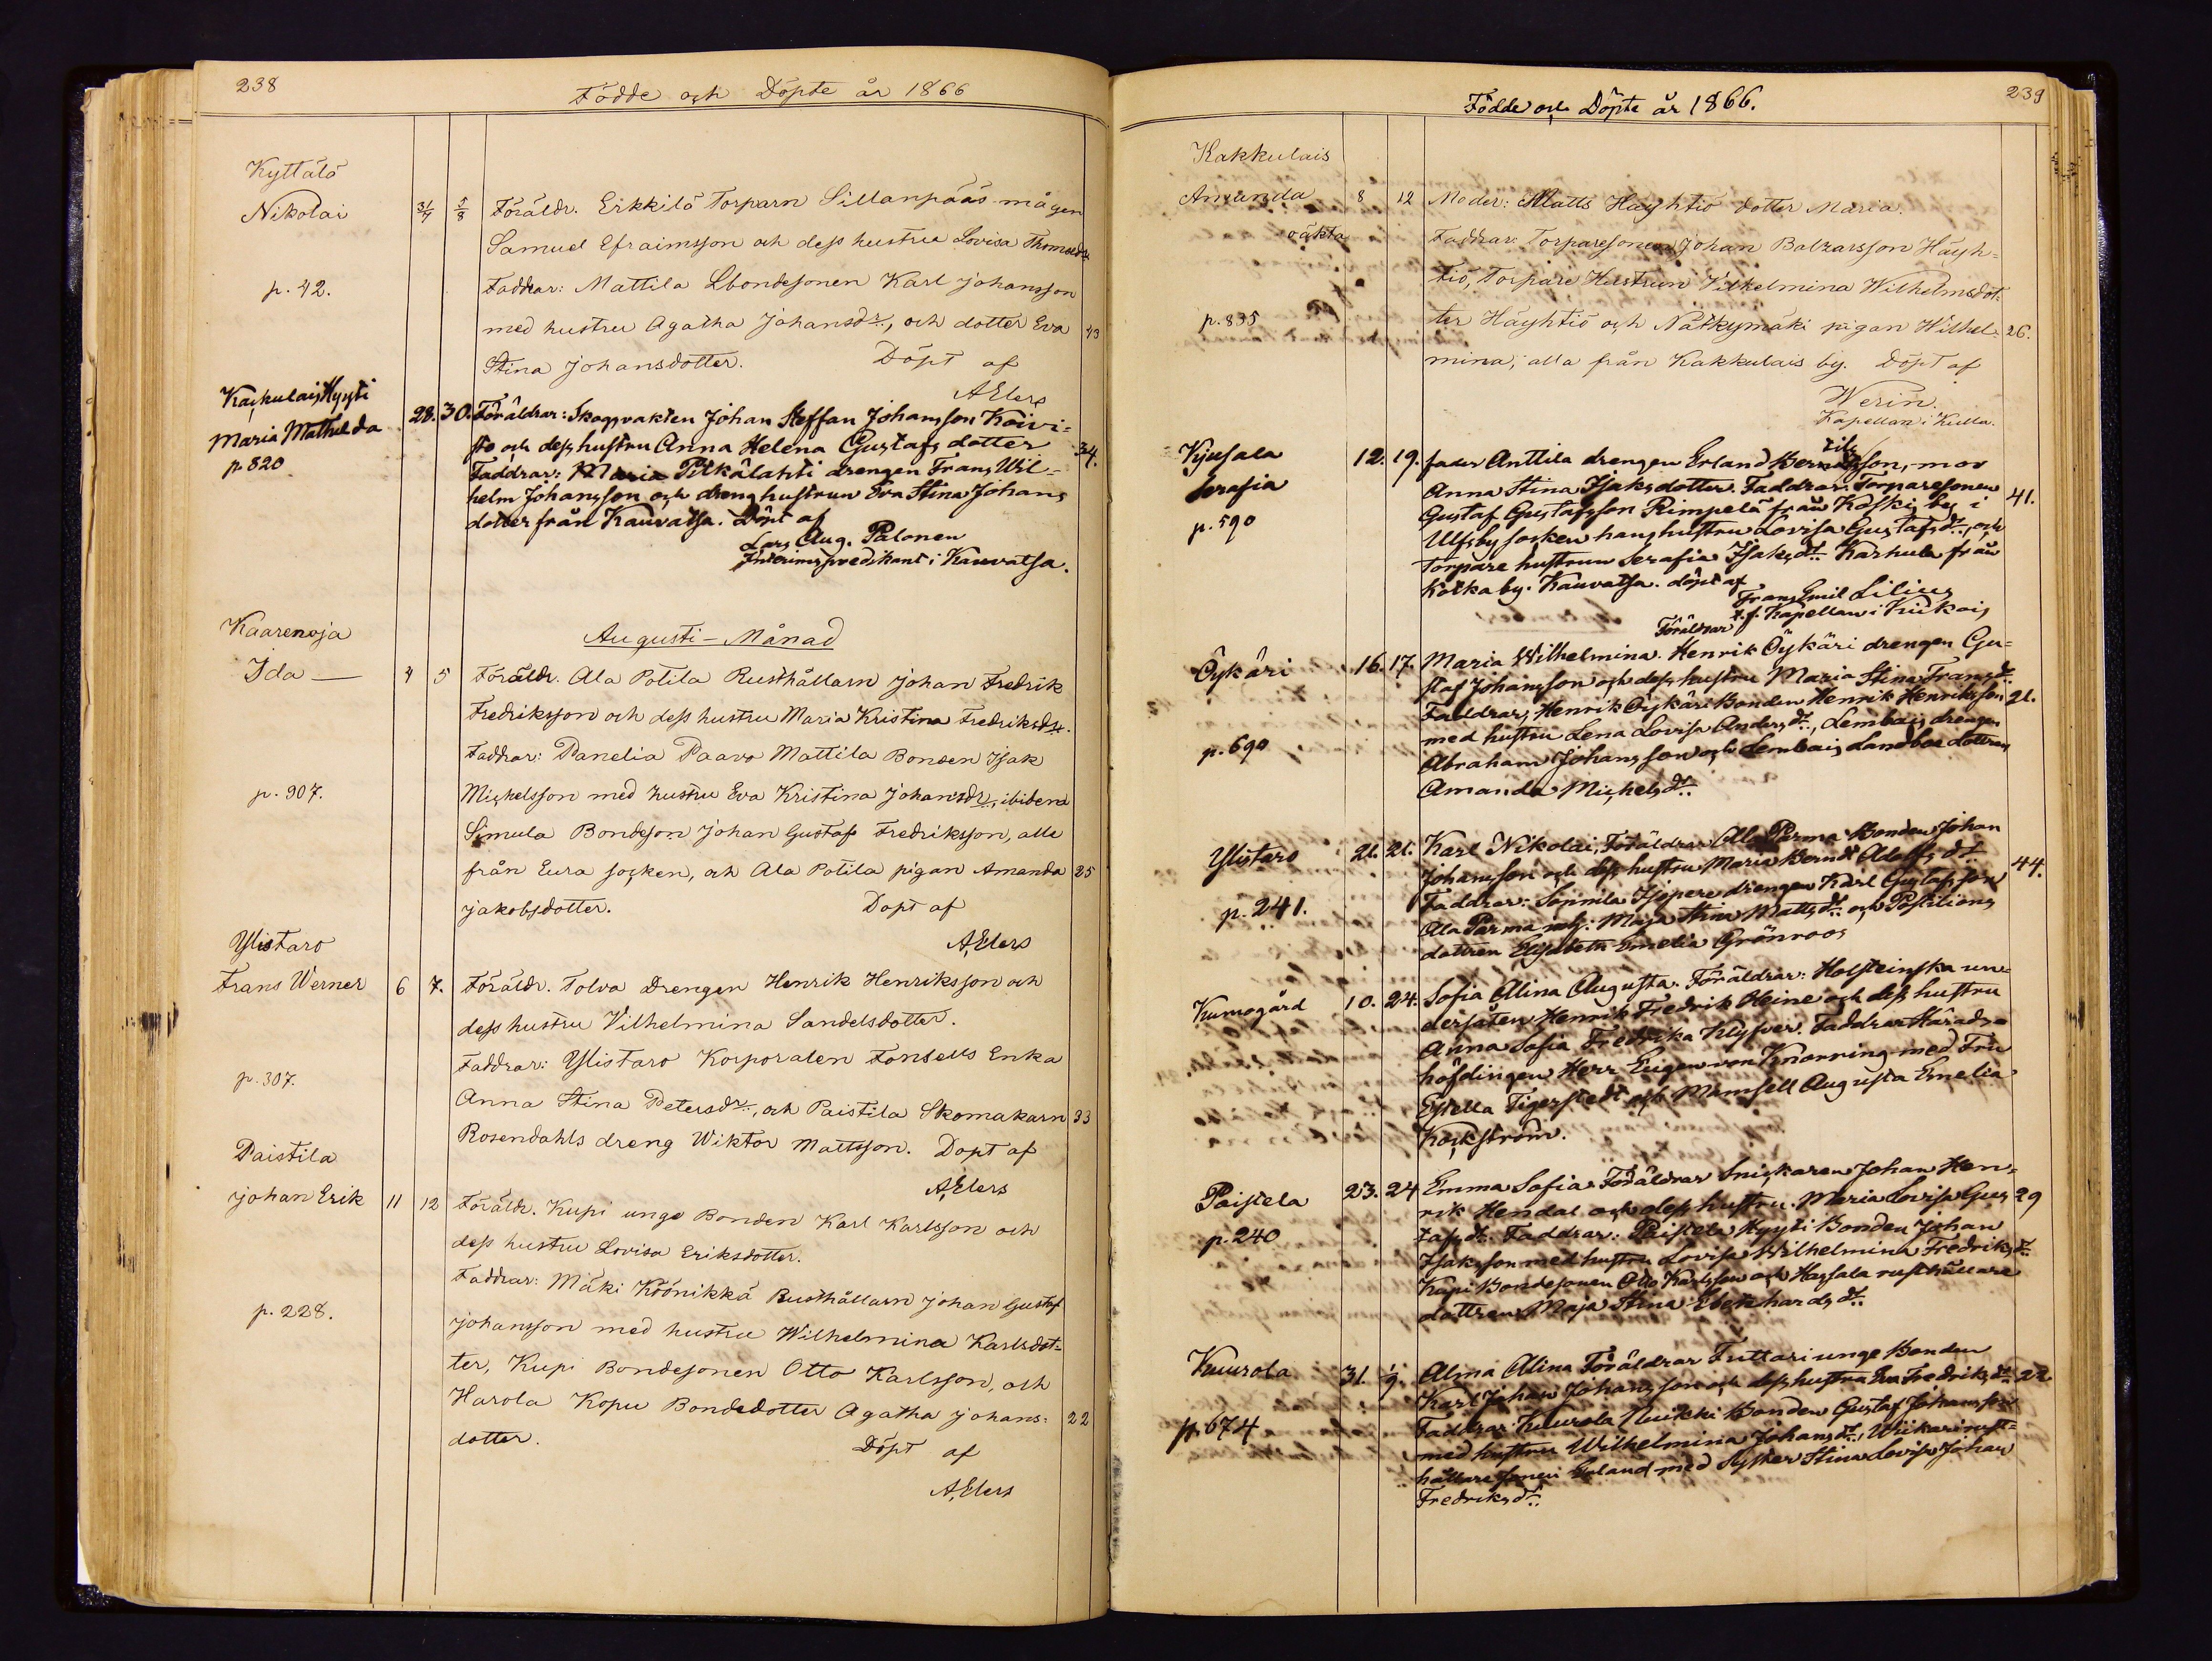 238
Födde och Döpte år 1866
Kyttälä
Nikolai 31/7 5/8 Föräldr. Erkkilä Torparn Sillanpääs mågen
Samuel Efraimsson och dess hustru Lovisa Thomasdr
p. 42. Faddrar: Mattila Lbondesonen Karl Johansson
med hustru Agatha Johansdr, och dotter Eva 43
Stina Johansdotter. Döpt af
AElers
Kackulais Hyysti
Maria Mathilda 28. 30. Föräldrar: Skogsvakten Johan Steffan Johansson Koivi=
p 820 sto och dess hustru Anna Helena Gustafs dotter 34.
Faddrar: Maria Pitkälahti drengen Frans Wil=
helm Johansson och dreng hustrun Eva Stina Johans
dotter från Kauvatsa. Döpt af
Lars Aug. Palonen
Interimspredikant i Kauvatsa.
Augusti - Månad
Kaarenoja
Ida — 4 5 Föräldr. Ala Potila Rusthållarn Johan Fredrik
Fredriksson och dess hustru Maria Kristina Fredriksdr.
Faddrar: Panelia Paavo Mattila Bonden Isak
p. 907. Mickelsson med hustru Eva Kristina Johansdr, ibidem
Simula Bondeson Johan Gustaf Fredriksson, alle
från Eura socken, och Ala Potila pigan Amanda 25
Jakobsdotter. Döpt af
AElers
Ylistaro
Frans Werner 6 7. Föräldr. Tolva Drengen Henrik Henriksson och
dess hustru Vilhelmina Sandelsdotter.
Faddrar: Ylistaro Korporalen Fonsells Enka
p. 307. Anna Stina Petersdr, och Paistila Skomakarn 33
Rosendahls dreng Wiktor Mattsson. Döpt af
AElers
Paistila
Johan Erik 11 12 Föräldr. Kupi unge Bonden Karl Karlsson och
dess hustru Lovisa Eriksdotter.
Faddrar: Mäki Köönikkä Rusthållarn Johan Gustaf
p. 228. Johansson med hustru Wilhelmina Karlsdot=
ter, Kupi Bondesonen Otto Karlsson, och
Harola Kopu Bondedotter Agatha Johans= 22
dotter. Döpt af
AElers
239
Födde och Döpte år 1866.
Kakkulais
Amanda 8 12 Moder: Matts Häyhtiö dotter Maria.
oäkta Faddrar: Torparesonen Johan Balzarsson Häyh=
tiö, Torpare Hustrun Vilhelmina Wilhelmsdot=
p. 835 ter Häyhtiö och Nätkymäki pigan Wilhel= 26.
mina, alla från Kakkulais by. Döpt af
Werin.
Kapellan i Kulla.
Kyusala 12. 19. fader Anttila drengen Erland son, mor
Serafia Anna Stina Isaksdotter. Faddrar: Torparesonen 41.
p. 590 Gustaf Gustafsson Rimpelä från Koskis by i
Ulfsby socken hans hustru Lovisa Gustafsdr., och
torpare hustrun Serafia Isaksdr. Karhula från
Kotka by. Kauvatsa. döpt af
Frans Emil Lilius
t.f. Kapellan i Kiukais
Föräldrar
Öykäri 16. 17. Maria Wilhelmina. Henrik Öykäri drengen Gu=
staf Johansson och dess hustru Maria Stina Fransdr.
Faddrar, Henrik Öykäri Bonden Henrik Henriksson 21.
med hustru Lena Lovisa Andersdr., Lembais drengen
p. 690 Abraham Johansson och Lembais Landboe dottren
Amanda Michelsdr.
Ylistaro 21. 21. Karl Nikolai, Föräldrar Alla Parma Bonden Johan
Johansson och dess hustru Maria Berndt Adolfsdr. 44.
p. 241. Faddrar: Sonnila Isopere drengen Karl Gustafsson
Ala Parma Maja Stina Mattsdr. och Postilions
dottren Elisabeth Emelia Grönroos
Kumogård 10. 24. Sofia Alina Augusta. Föräldrar: Holsteinska un=
dersåten Henrik Fredrik Heine och dess hustru
Anna Sofia Fredrika Klyfver. Faddrar Härads=
höfdingen Herr Eugen von Knorring med Fru
Estella Tigerstedt och Mamsell Augusta Emelia
Kockström.
Paistela 23. 24 Emma Sofia. Föräldrar Snickaren Johan Hen=
rik Hendal och dess hustru. Maria Lovisa Gus 29
p. 240 tafsdr. Faddrar: Paistela Hyysti Bonden Johan
Isaksson med hustru Lovisa Wilhelmina Fredriksdr.
Kupi Bondesonen Otto Karlsson och Haysala rusthållare
dottren Maja Stina Eberhardsdr.
Kuurola 31. 1/9. Alma Alina Föräldrar Futtari unge Bonden
Karl Johan Johansson och dess hustru Eva Fredriksdr. 22.
p. 674 Faddrar: Kuurola Nuikki Bonden Gustaf Johansson
med hustru Wilhelmina Johansdr., Wiikari rust=
hållare sonen Erland med Syster Stina Lovisa Johan
Fredriksdr.